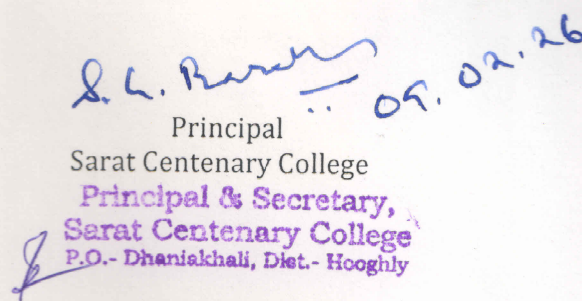 09.02.26
Principal
Sarat Centenary College
Principal & Secretary,
Sarat Centenary College
P.O.- Dhaniakhali, Dist.- Hooghly